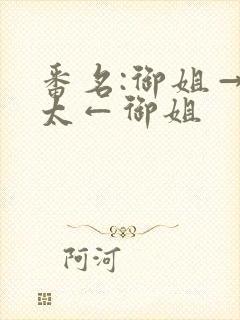 番名:御姐→
太←御姐
阿河